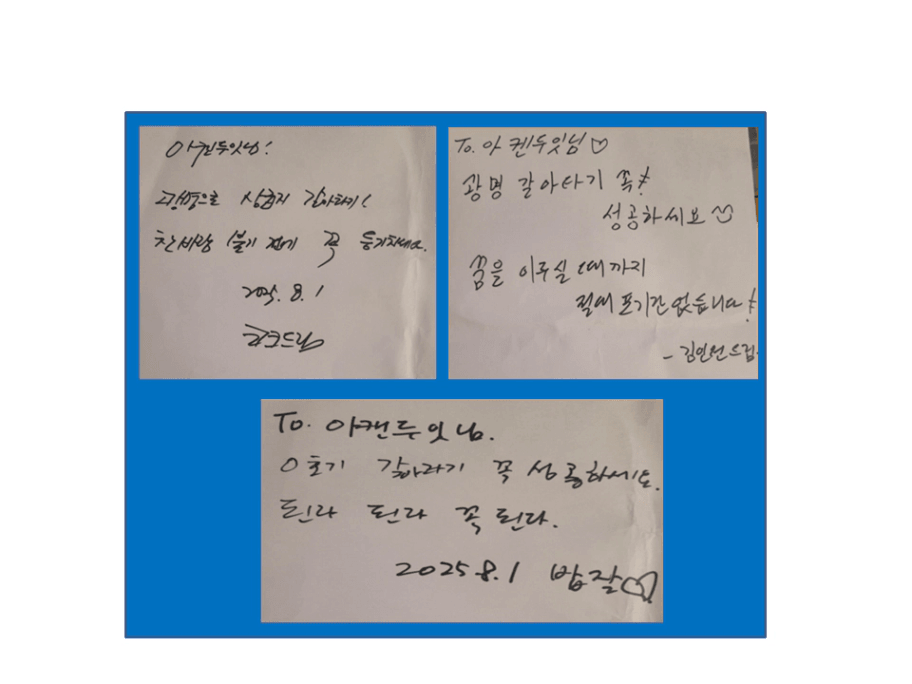 아켄두잇님!
상급지 갈아타기
찬바람 불기 전에 꼭 등기하세요.
2025. 8. 1
To. 아 켄두잇님♡
광명 갈아타기 꼭!
성공하세요
꿈을 이루실 때까지
절대 포기란 없습니다!
드림
To. 아캔두잇님.
0호기 갈아타기 꼭 성공하세요.
된다 된다 꼭 된다.
2025.8.1 밥잘♡